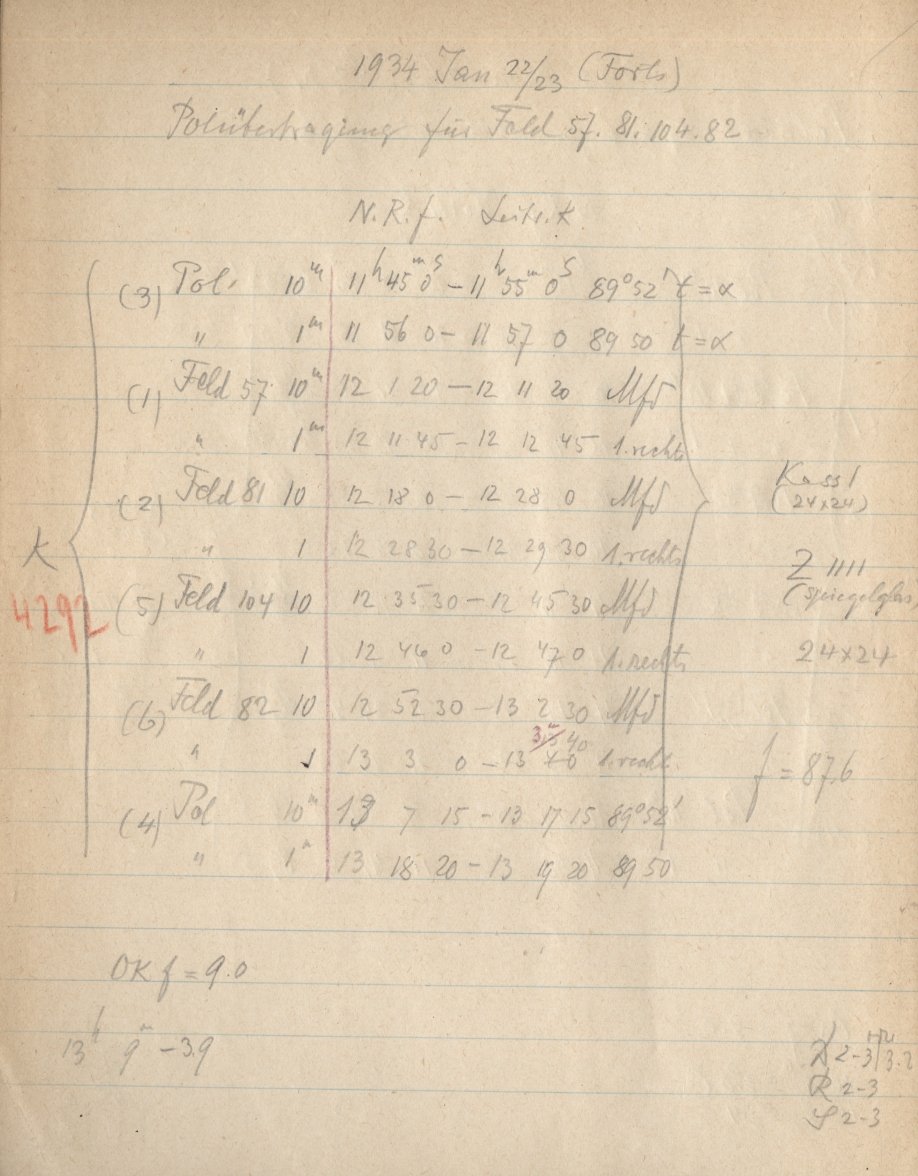 1934 Jan 22/23 (Forts)
Polübertragung für Feld 57. 81. 104. 82
N.R.f. Leitr. K
(3) Pol. 10ᵐ 11ʰ 45ᵐ 0ˢ – 11ʰ 55ᵐ 0ˢ 89°52' t = α
" 1ᵐ 11 56 0 – 11 57 0 89 50 t = α
(1) Feld 57 10ᵐ 12 1 20 – 12 11 20
" 1ᵐ 12 11 45 – 12 12 45 1. rechts
(2) Feld 81 10 12 18 0 – 12 28 0
Kass I
(24x24)
" 1 12 28 30 – 12 29 30 1. rechts
K
Z IIII
(Spiegelglas
4292
(5) Feld 104 10 12 35 30 – 12 45 30
" 1 12 46 0 – 12 47 0 1. rechts
24x24
(6) Feld 82 10 12 52 30 – 13 2 30
" 1 13 3 0 – 13 40 1. recht.
f = 87.6
(4) Pol 10ᵐ 13 7 15 – 13 17 15 89°52'
" 1ᵐ 13 18 20 – 13 19 20 89 50
OK f = 9.0
13ʰ 9ᵐ – 3.9
2-3 3.2
R 2-3
S 2-3